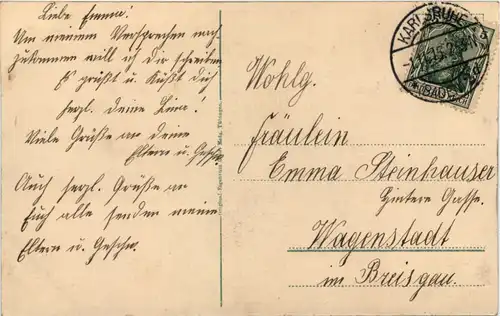 Liebe Emma!
Um meinem Versprechen nach-
zukommen will ich dir schreiben
Es grüßt u. küßt dich
herzl. deine
Viele Grüße an deine
Eltern u. Geschw.
Auch herzl. Grüße an
Euch alle senden meine
Eltern u. Geschw.
KARLSRUHE
(BADEN)
Wohlg.
Fräulein
Emma Steinhauser
Hintere Gasse.
Wagenstadt
im Breisgau.